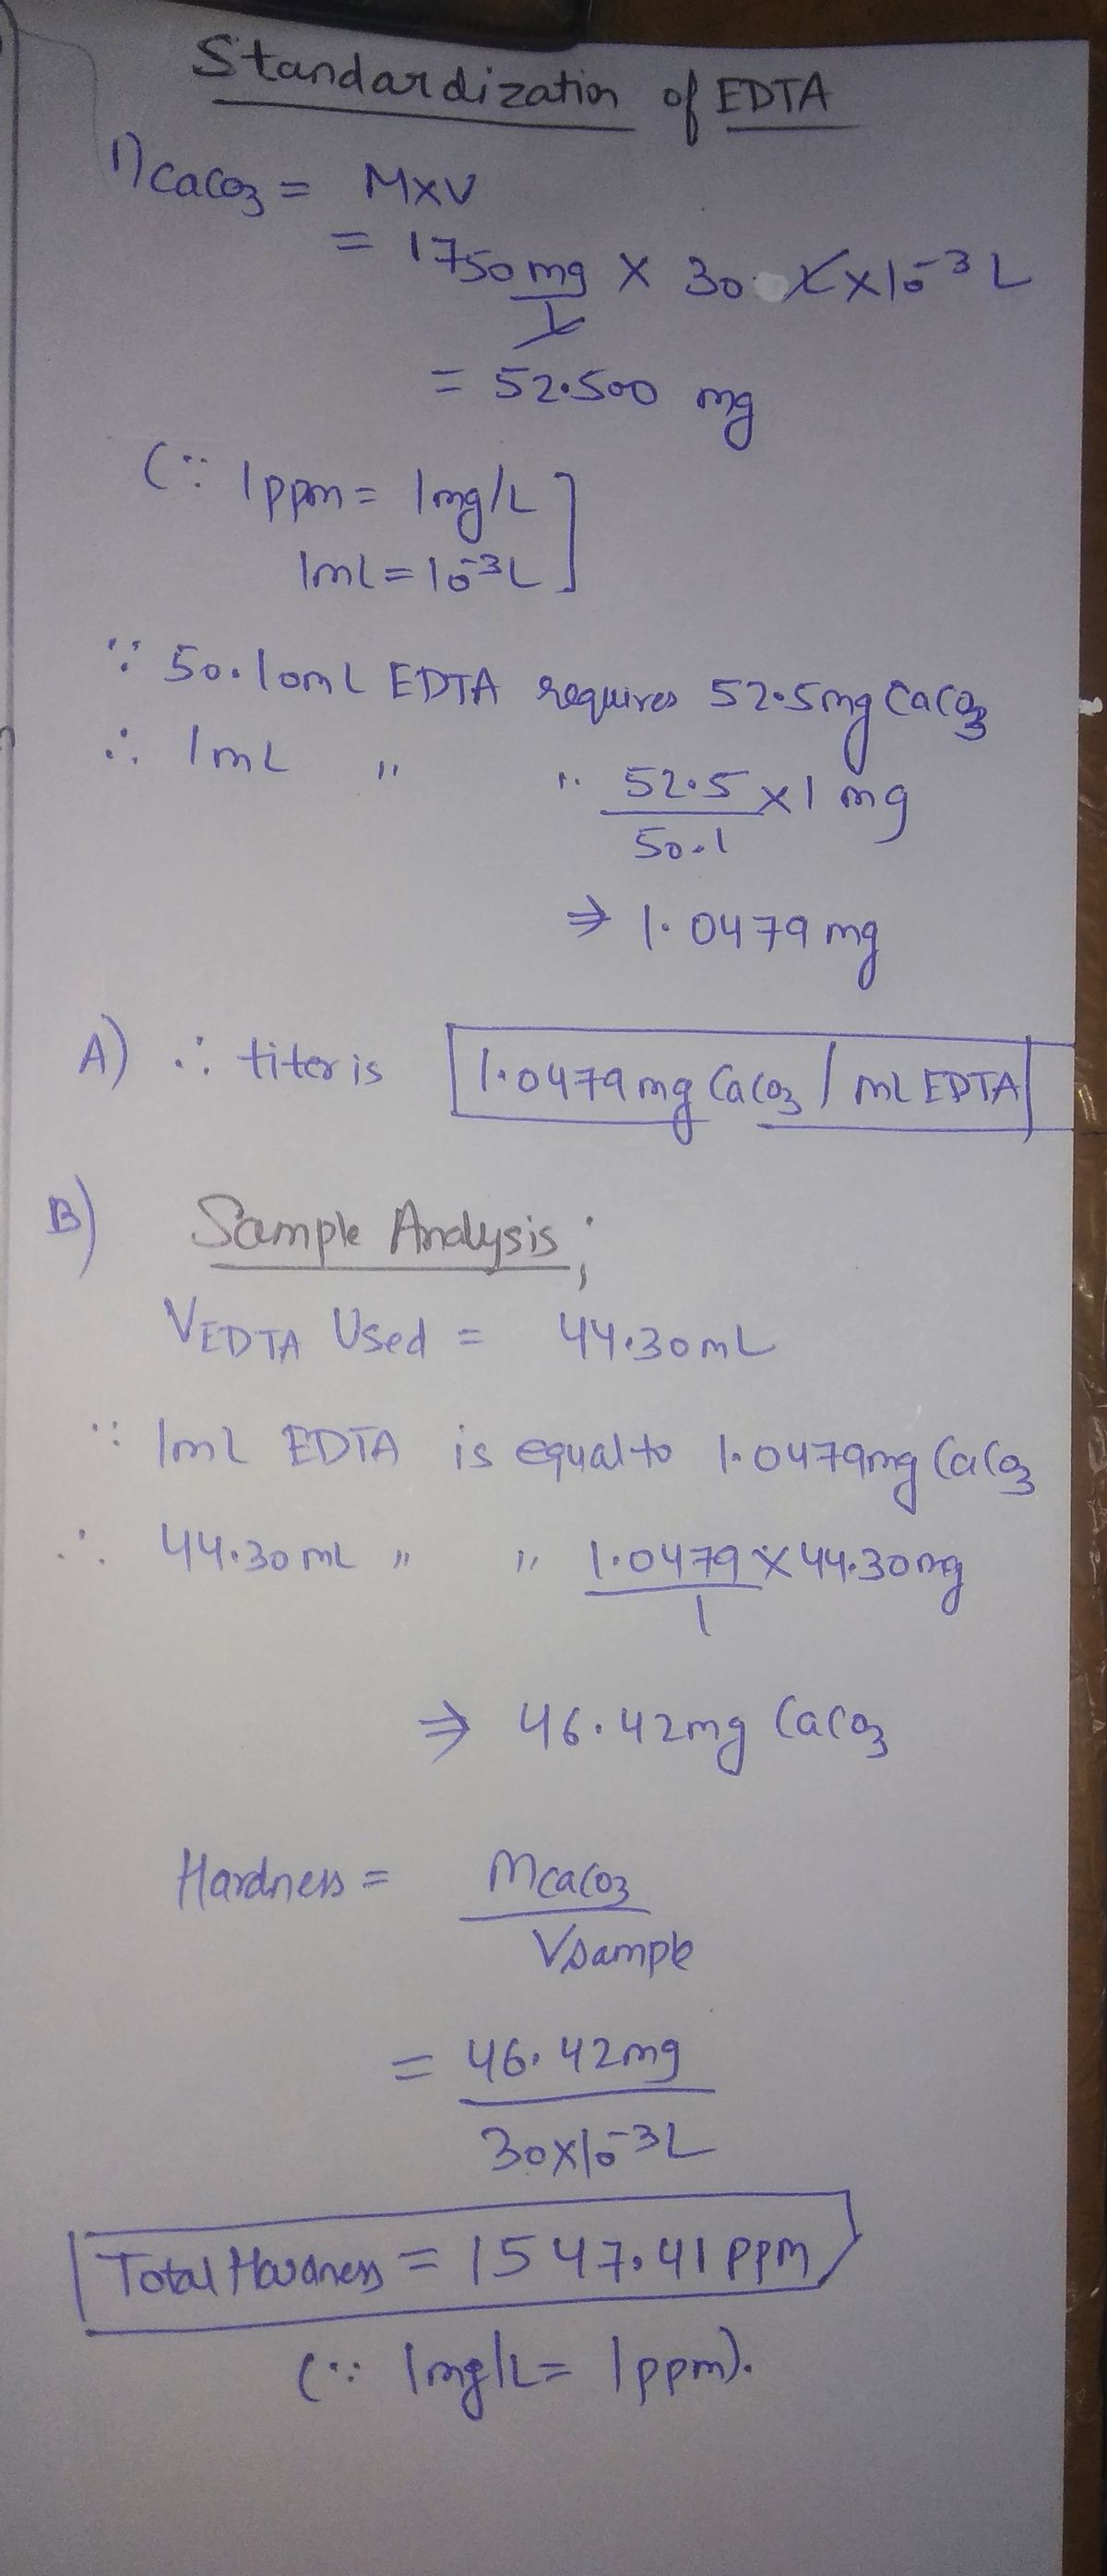 Standardization of EDTA
ηCaCO3 = M×V
= 1750 mg/L × 30 × 10-3 L
= 52.500 mg
(∵ 1ppm = 1mg/L
1mL = 10-3L]
∵ 50.10mL EDTA requires 52.5mg CaCO3
∴ 1mL " " 52.5/50.1 ×1 mg
⇒ 1.0479 mg
A) ∴ titer is 1.0479 mg CaCO3 / mL EDTA
B) Sample Analysis;
VEDTA Used = 44.30mL
∵ 1mL EDTA is equal to 1.0479mg CaCO3
∴ 44.30mL " " 1.0479 × 44.30mg
1
⇒ 46.42mg CaCO3
Hardness = MCaCO3
Vsample
= 46.42mg
30×10-3L
Total Hardness = 1547.41 ppm
(∵ 1mg/L = 1ppm).